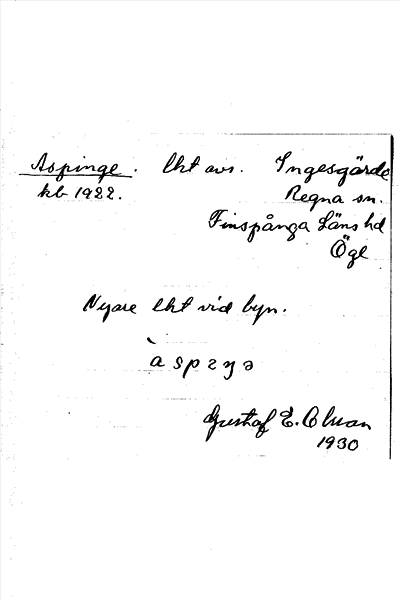 Aspinge. lht avs. Ingesgärde
kb 1922. Regna sn.
Finspånga Läns hd
Ögl
Nyare lht vid byn.
Gustaf E. Olman
1930